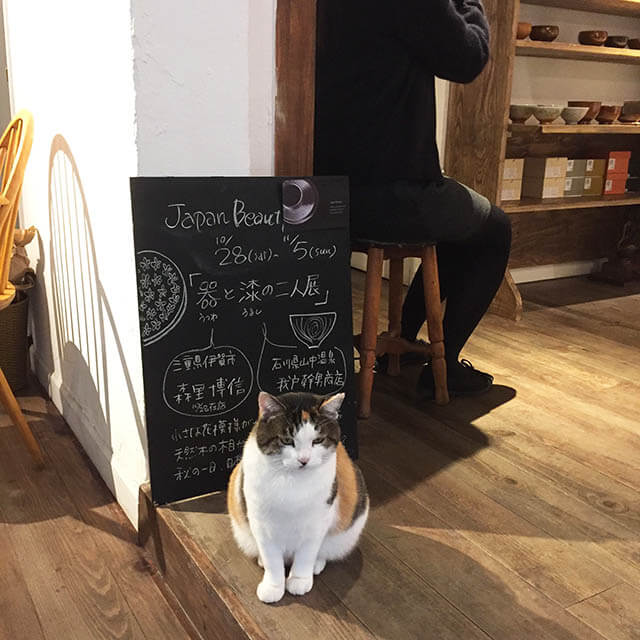 Japan Beaut
10/28(sat)~11/5(sun)
「器と漆の二人展」
うつわ うるし
三重県伊賀市
森里博信
石川県山中温泉
我戸幹男商店
小さな花模様が
天然木の木目
秋の一日、